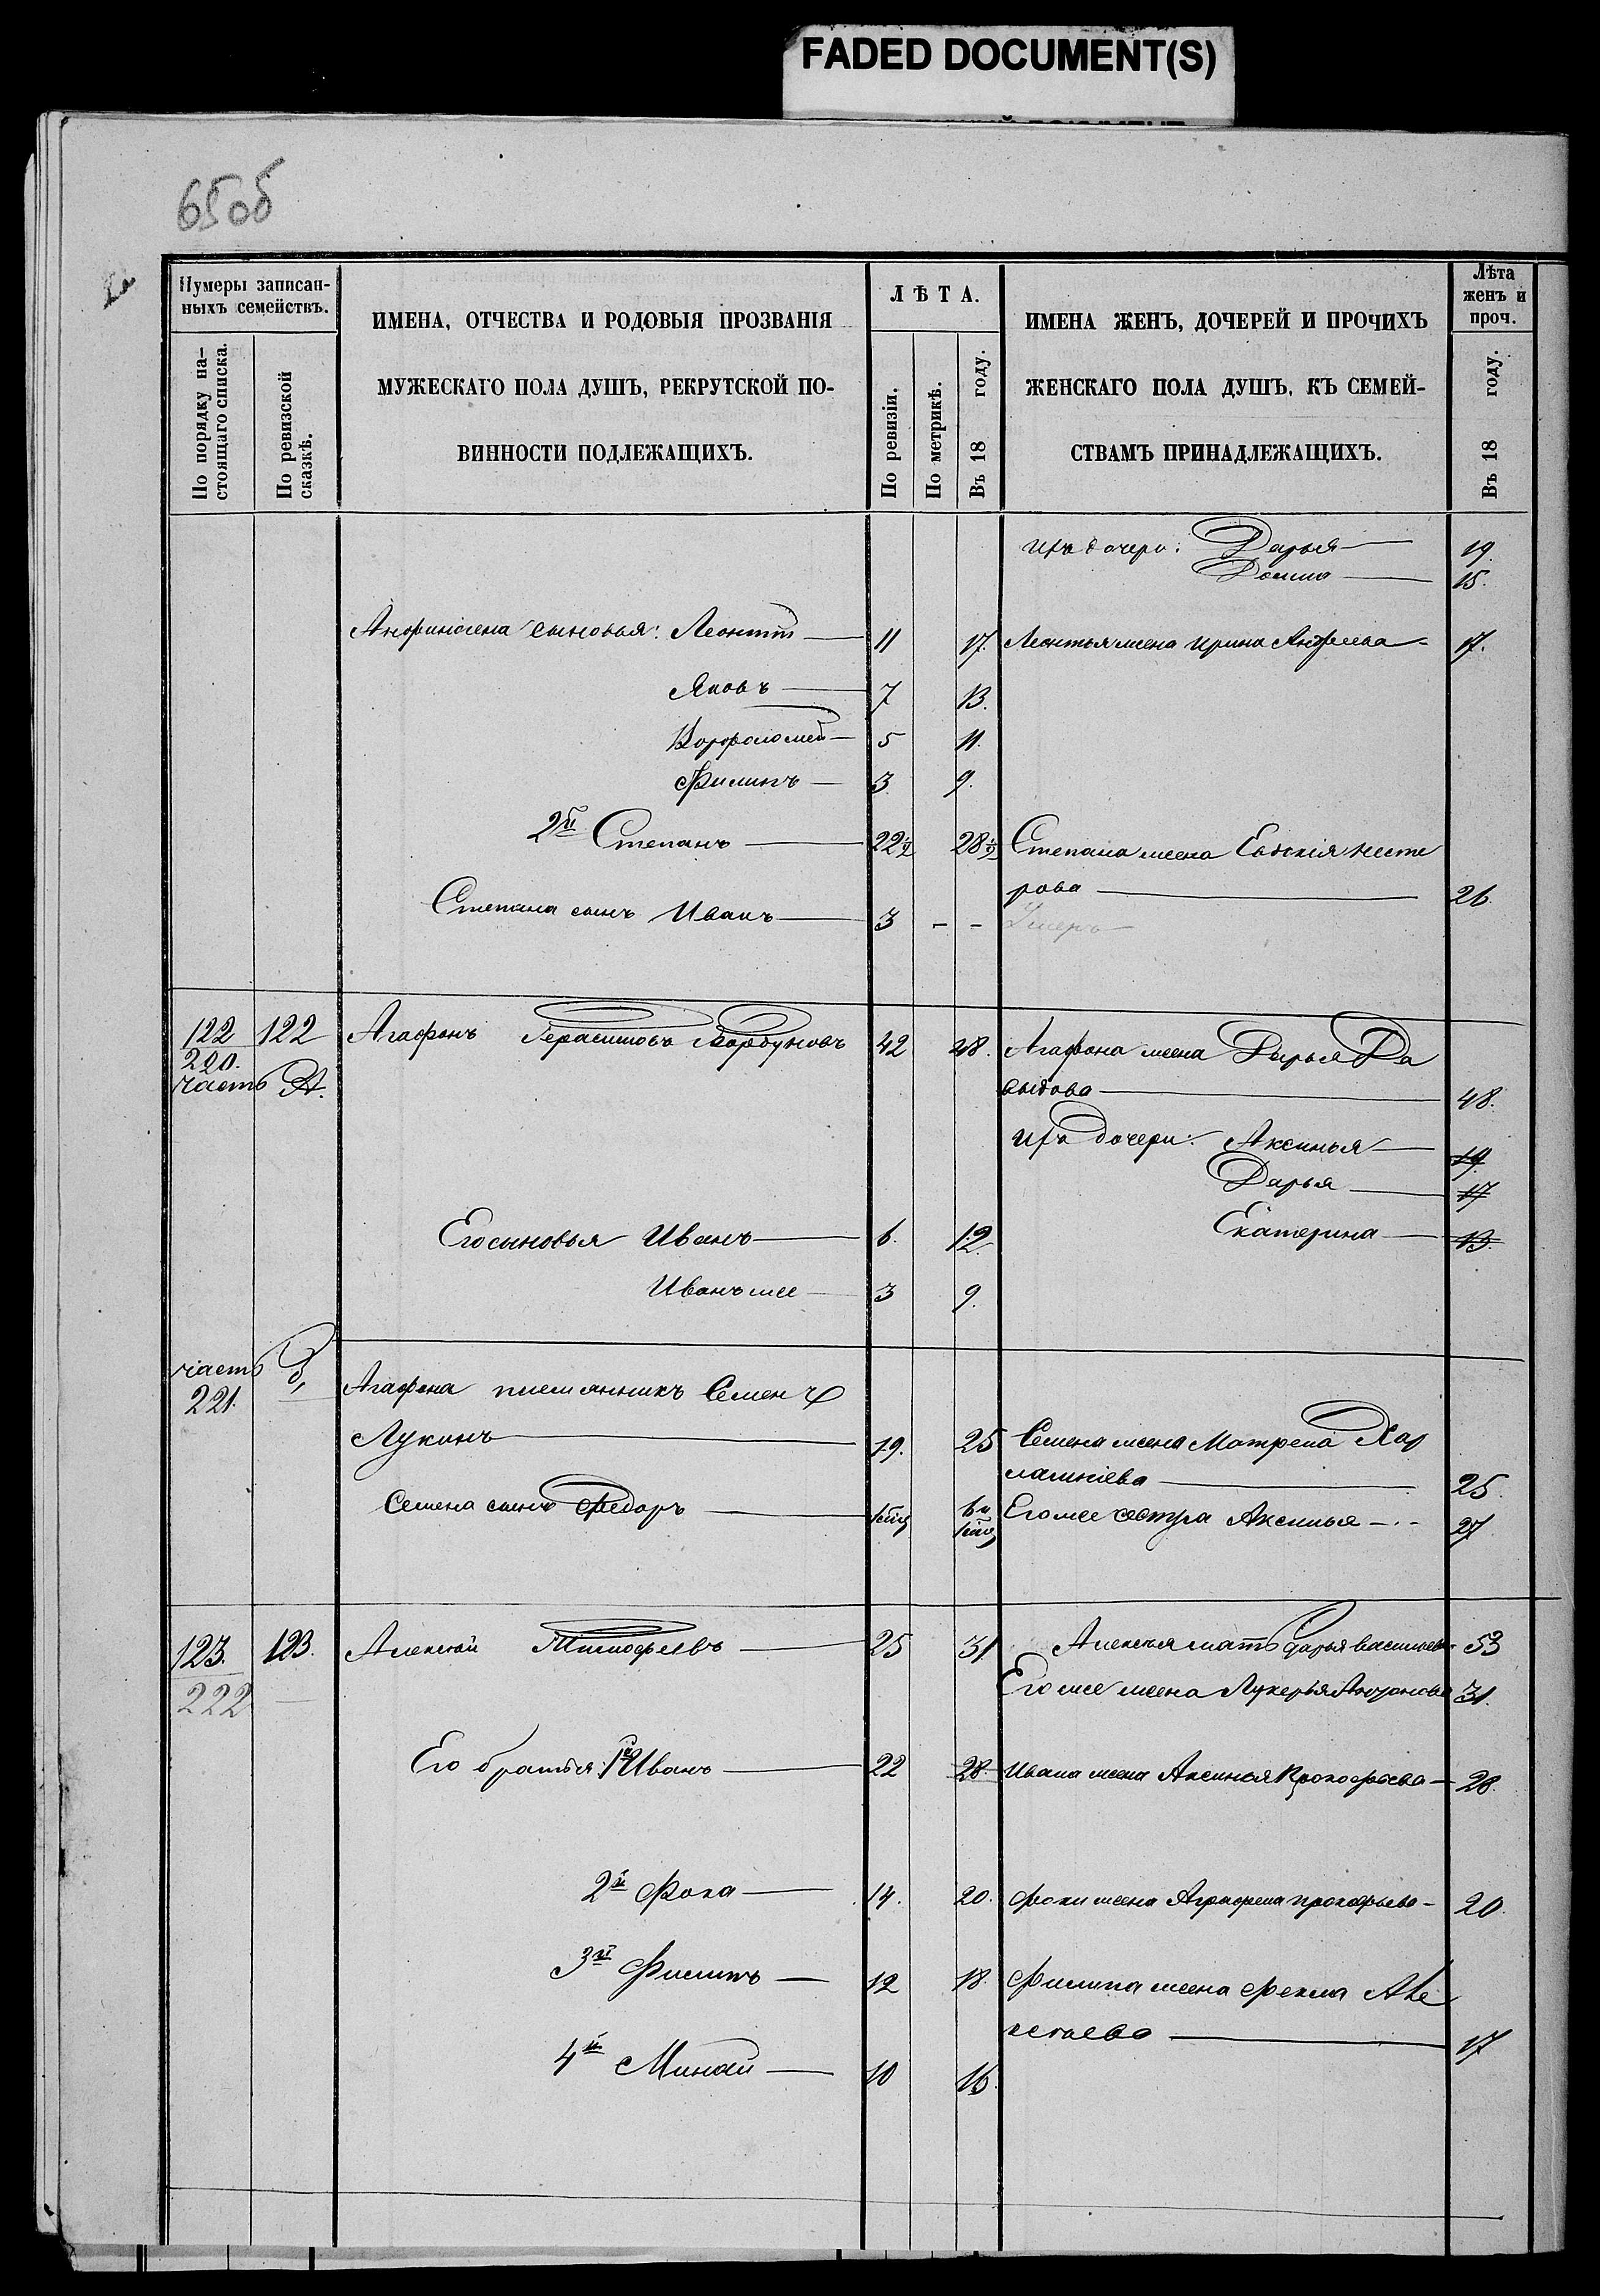 FADED DOCUMENT(S)
65об
Нумеры записан-
ныхъ семействъ.
По порядку на-
стоящаго списка.
По ревизской
сказкѣ.
ИМЕНА, ОТЧЕСТВА И РОДОВЫЯ ПРОЗВАНІЯ
МУЖЕСКАГО ПОЛА ДУШЪ, РЕКРУТСКОЙ ПО-
ВИННОСТИ ПОДЛЕЖАЩИХЪ.
ЛѢТА.
По ревизіи.
По метрикѣ.
Въ 18 году.
ИМЕНА ЖЕНЪ, ДОЧЕРЕЙ И ПРОЧИХЪ
ЖЕНСКАГО ПОЛА ДУШЪ, КЪ СЕМЕЙ-
СТВАМЪ ПРИНАДЛЕЖАЩИХЪ.
Лѣта
женъ и
проч.
Въ 18 году.
ихъ дочери: Дарья 19.
Домна 15.
сыновья: Леонтій 11 17. Леонтья жена Ирина Андреева 17.
Яковъ 7 13.
Ворфоломей 5 11.
Филипъ 3 9.
2й Степанъ 22½ 28½ Степана жена Евдокія Несте
рова 26
Степана сынъ Иванъ 3 - - Умеръ
122 122 Агафонъ Герасимовъ Горбуновъ 42 48. Агафона жена Дарья Да
220.
часть А.
выдова 48.
ихъ дочери: Аксинья 19
Дарья 17
Его сыновья Иванъ 6. 12. Екатерина 13.
Иванъ же 3 9.
часть Б,
221.
Агафона племянникъ Семенъ
Лукинъ 19. 25 Семена жена Матрена Хар
лампіева 25.
Семена сынъ Федоръ Его же сестра Аксинья 27
123. 123. Алексѣй Тимофѣевъ 25 31 Алексѣя мать Дарья Васильева 53
222
Его же жена Лукерья 31.
Его братья: 1й Иванъ 22 28. Ивана жена Аксинья Прокофьева 28.
2й Фока 14. 20. Фоки жена Аграфена Прокофьева 20.
3й Филипъ 12 18. Филипа жена Фекла Але
ксѣева 17
4й Минай 10 16.